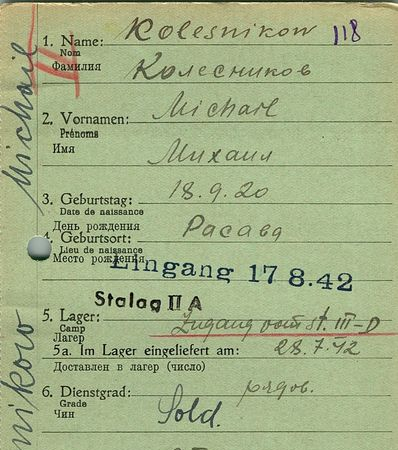 1. Name: Kolesnikow 118
Nom
Фамилия Колесников
2. Vornamen: Michail
Prénoms
Имя Михаил
3. Geburtstag: 18.9.20
Date de naissance
День рождения
4. Geburtsort: Расава
Lieu de naissance
Место рождения
Eingang 17 8.42
Stalag II A
5. Lager: Zugang vom St. III-D
Camp
Лагерь
5a. Im Lager eingeliefert am: 28.7.42
Доставлен в лагер (число)
6. Dienstgrad: рядов.
Grade
Чин Sold.
Michail
nikow